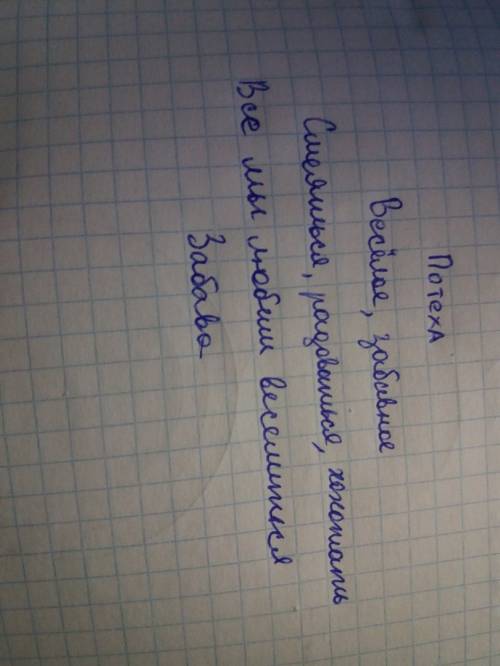 Потеха
Весёлое, забавное
Смеяться, радоваться, хохотать
Все мы любим веселиться
Забава